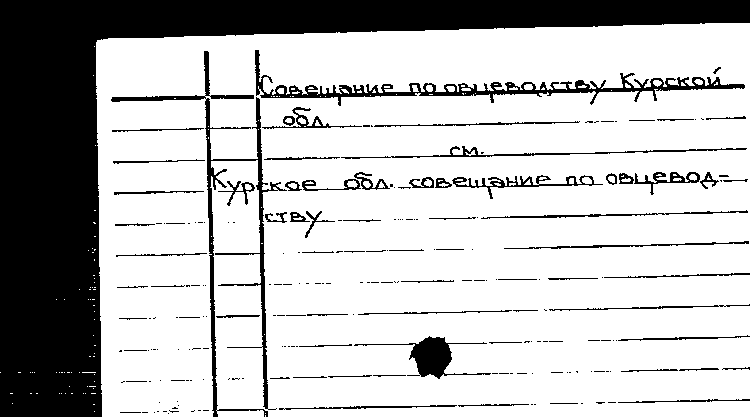 Совещание по овцеводству Курской
обл.
см.
Курское обл. совещание по овцевод=
ству